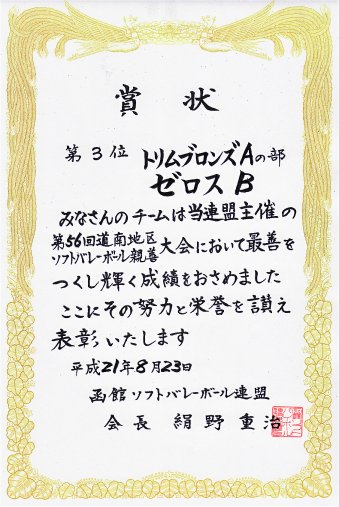 賞状
第3位 トリムブロンズAの部
ゼロス B
みなさんのチームは当連盟主催の
第56回道南地区
ソフトバレーボール親善
大会において最善を
つくし輝く成績をおさめました
ここにその努力と栄誉を讃え
表彰いたします
平成21年8月23日
函館ソフトバレーボール連盟
会長 絹野重治